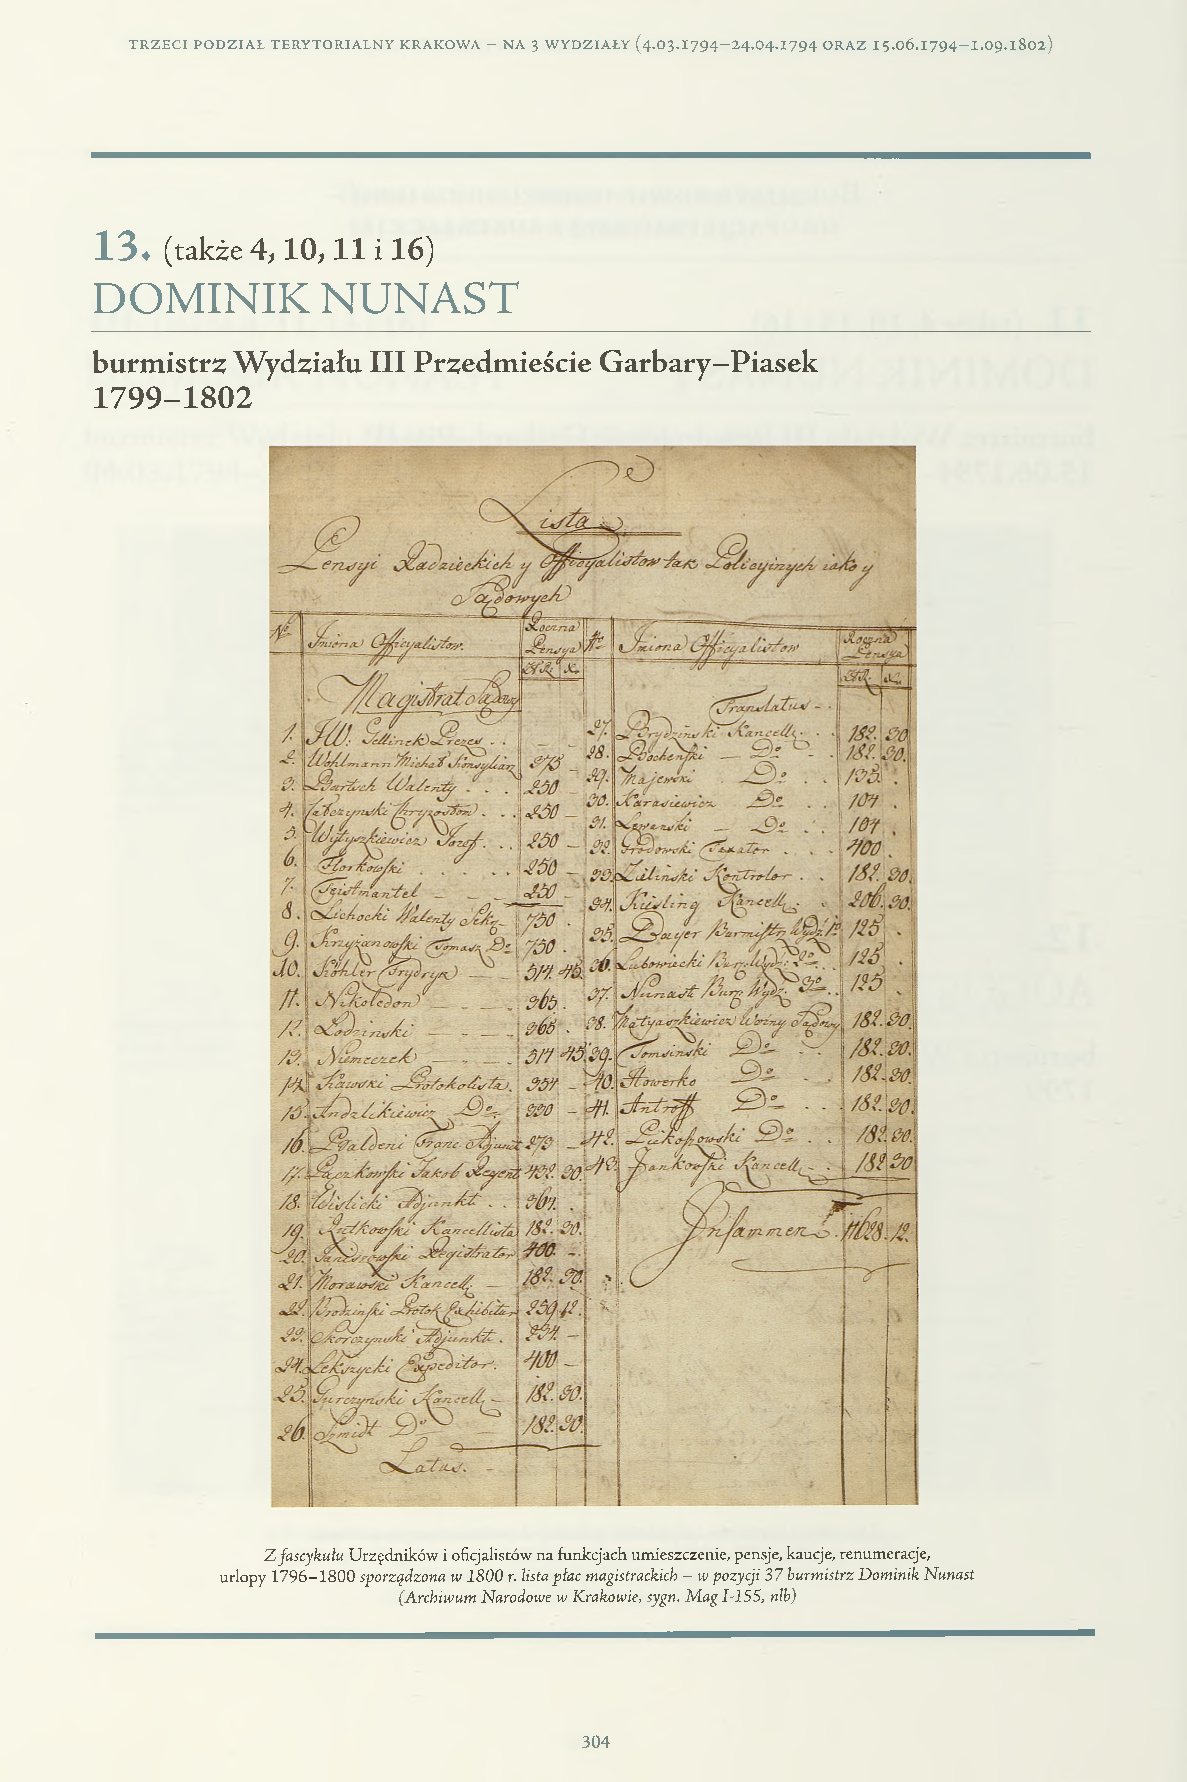 TRZECI PODZIAŁ TERYTORIALNY KRAKOWA – NA 3 WYDZIAŁY (4.03.1794–24.04.1794 ORAZ 15.06.1794–1.09.1802)
13. (także 4, 10, 11 i 16)
DOMINIK NUNAST
burmistrz Wydziału III Przedmieście Garbary–Piasek
1799–1802
Lista
Pensyi Radzieckich y Officyalistow tak Policyinych iako y
Sądowych
No Imiona Officyalistow. Roczna Pensya
ZłR. x.
Magistrat Sądowy
1. JW: Gellinek Prezes . .
2. Wohlmann Michał Konsyliarz 375 –
3. Bartsch Walenty . . . 250 –
4. Chryzostom . . . 250 –
5. Wytyszkiewicz Jozef . . 250 –
6. Florkowski . . . . . 250 –
7. Teistmantel – – – 250 –
8. Lichocki Walenty Sekr– 750 .
9. Krzyżanowski Tomasz Do 750 .
10. Köhler Frydryk – – 514. 45.
11. Nikoledon – – – 365. .
12. Lodzinski – – – 365 .
13. Niemeczek – – – 514 45.
14. Rawski Protokolista. 354 –
15. Andzlikiewicz Do. 330 –
16. Baldeni Franc Adjunkt 273 –
17. Pączkowski Jakob Regent 432. 30.
18. Wislicki Adjunkt . . 364. .
19. Rutkowski Kancellista 182. 30.
20. Janiszowski Registrator 400. –
21. Morawski Kancell. – 182. 30.
22. Brodzinski Protok Exhibitor 259 12.
23. Skorczynski Adjunkt . 234. –
24. Lekszycki Expeditor. 400 –
25. Gurczynski Kancell – 182. 30.
26. Szmidt Do – 182. 30.
Latus. –
No Imiona Officyalistow Roczna Pensya
ZłR. x.
Translatus – .
27. Brydzinski Kancell. . . 182. 30
28. Bochenski – Do – . 182. 30.
29. Majewski Do . . 135. .
30. Karasiewicz Do . . 104 .
31. Lewanski – Do . . 104 .
32. Grodowski Taxator . . . 400 .
33. Zaliński Kontrolor . . 182. 30.
34. Kiesling Kancell. . 206. 30.
35. Bayer Burmistrz Wydz 1o 125 .
36. Lubowiecki Burm Wydz: 2o . . 125 .
37. Nunast Burm Wydz. 3o . . 125 .
38. Matyaszkiewicz Woźny Sądowy 182. 30.
39. Tomsinski Do . . 182. 30.
40. Howerko Do . . 182. 30.
41. Antroff Do . . . 182. 30.
42. Do . . 182. 30.
43. Jankowski Kancell – . 182 30
Insammen . 11628. 12.
Z fascykułu Urzędników i oficjalistów na funkcjach umieszczenie, pensje, kaucje, renumeracje,
urlopy 1796–1800 sporządzona w 1800 r. lista płac magistrackich – w pozycji 37 burmistrz Dominik Nunast
(Archiwum Narodowe w Krakowie, sygn. Mag I-155, nlb)
304